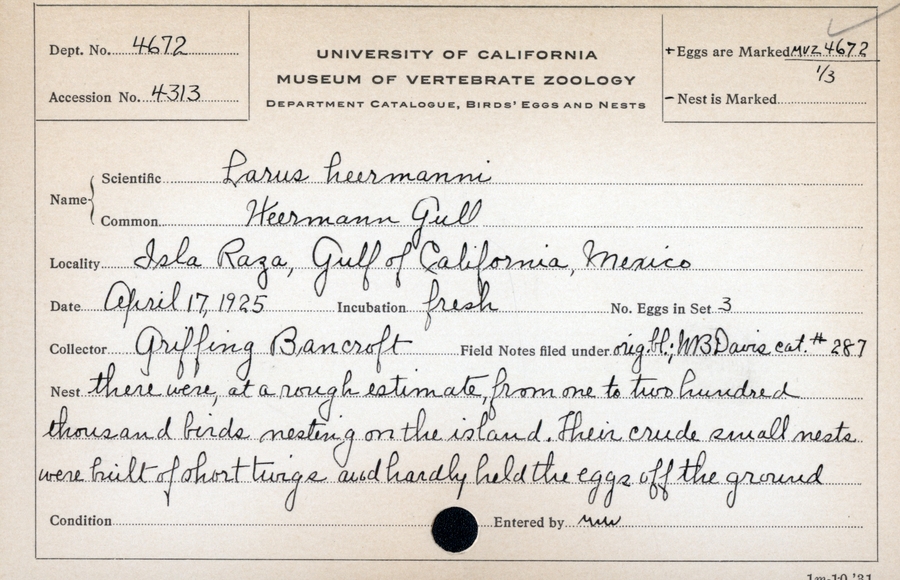 Dept. No. 4672
Accession No. 4313
UNIVERSITY OF CALIFORNIA
MUSEUM OF VERTEBRATE ZOOLOGY
DEPARTMENT CATALOGUE, BIRDS' EGGS AND NESTS
+ Eggs are Marked MVZ 4672
1/3
- Nest is Marked
Name
Scientific Larus heermanni
Common Heermann Gull
Locality Isla Raza, Gulf of California, Mexico
Date April 17, 1925 Incubation fresh No. Eggs in Set 3
Collector Griffing Bancroft Field Notes filed under orig. bl.; WB Davis cat. # 287
Nest there were, at a rough estimate, from one to two hundred
thousand birds nesting on the island. Their crude small nests
were built of short twigs and hardly held the eggs off the ground
Condition Entered by
1m-10,'31